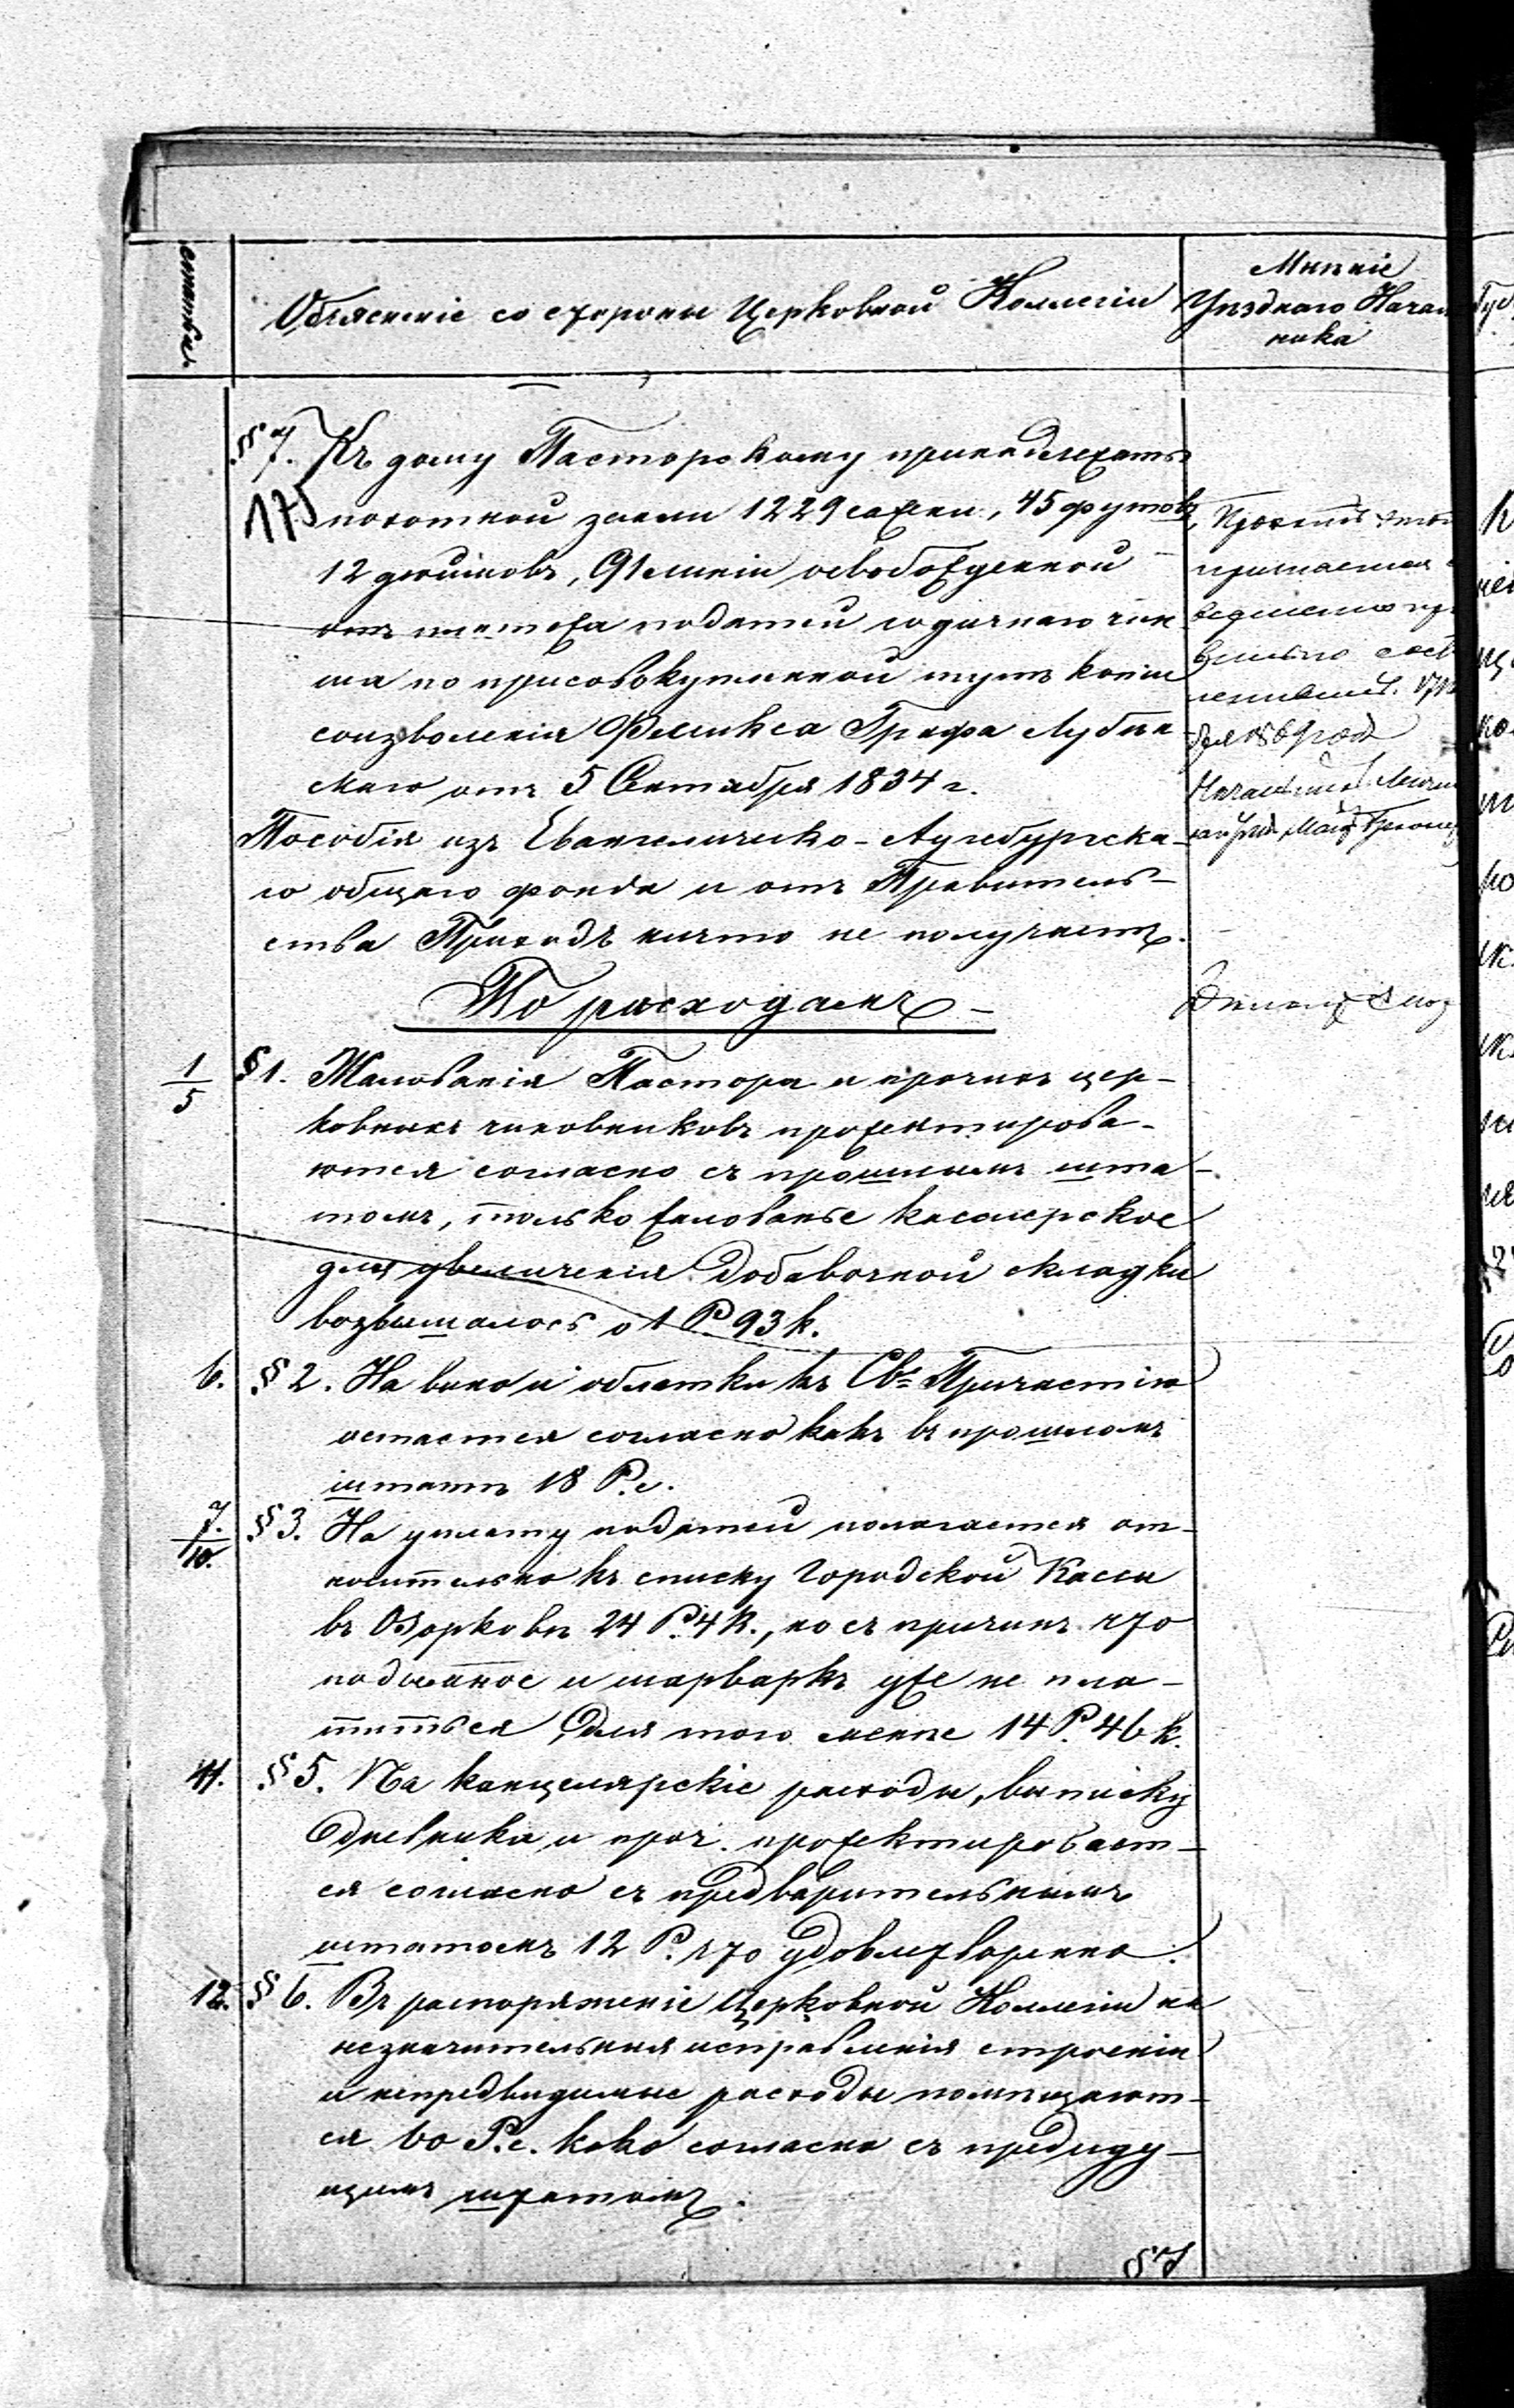 статьи
Объясненіе со стороны Церковной Коллегіи
Мнѣніе
Уѣзднаго Начал
ника
§ 7. Къ дому Пасторскому принадлежатъ
175 похотной земли 1229 сажени, 45 футовъ,
12 дюймовъ, 91 линіи освобожденной
отъ платежа податей годичнаго чин
ша по присовокупленной тутъ копіи
соизволенія Феликса Графа Лубин
скаго отъ 5 Сентября 1834 г.
Пособія изъ Евангелическо-Аугсбургска-
го общаго фонда и отъ Правитель-
ства Приходъ ничто не получаетъ.
По расходамъ
1/5 § 1. Жалованія Пастора и прочихъ цер-
ковныхъ чиновниковъ проектирова-
ются согласно съ прошлымъ шта-
томъ, только жалованье кассирское
для увеличенія добавочной складки
возвышалось о 1 Р. 93 к.
6. § 2. На вино и облатки къ Св. Причастію
остается согласно какъ въ прошломъ
штатѣ 18 Р.с.
7./10. § 3. На уплату податей полагается от-
носительно къ списку Городской Кассы
въ Озорковѣ 24 Р. 4 к., но съ причинъ что
подымное и шарваркъ уже не пла-
титься, для того менѣе 14 Р. 46 к.
11. § 5. На канцелярскіе расходы, выписку
Дневника и проч. проектировает-
ся согласно съ предварительнымъ
штатомъ 12 Р. что удовлетворенно.
12. § 6. Въ распоряженіе Церковной Коллегіи на
незначительныя исправленія строеній
и непредвидимые расходы помѣщают-
ся 60 Р.с. како согласно съ предиду-
щимъ штатомъ.
§ 7